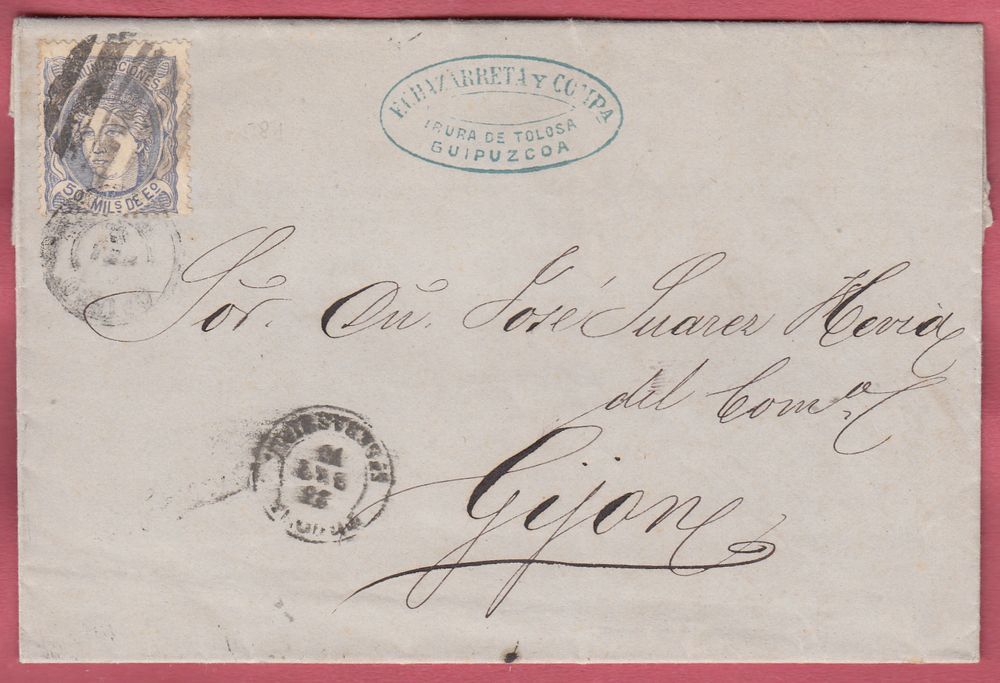 COMUNICACIONES
50 MILS DE EO.
ECHAZARRETA Y COMPA
IRURA DE TOLOSA
GUIPUZCOA
Sor. Dn. José Suarez Hevia
del Como.
Gijon